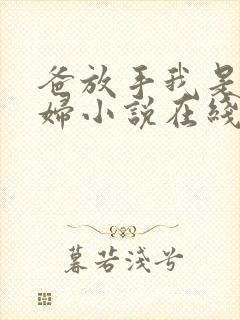 爸放手我是
婦小說在綫
暮若淺兮